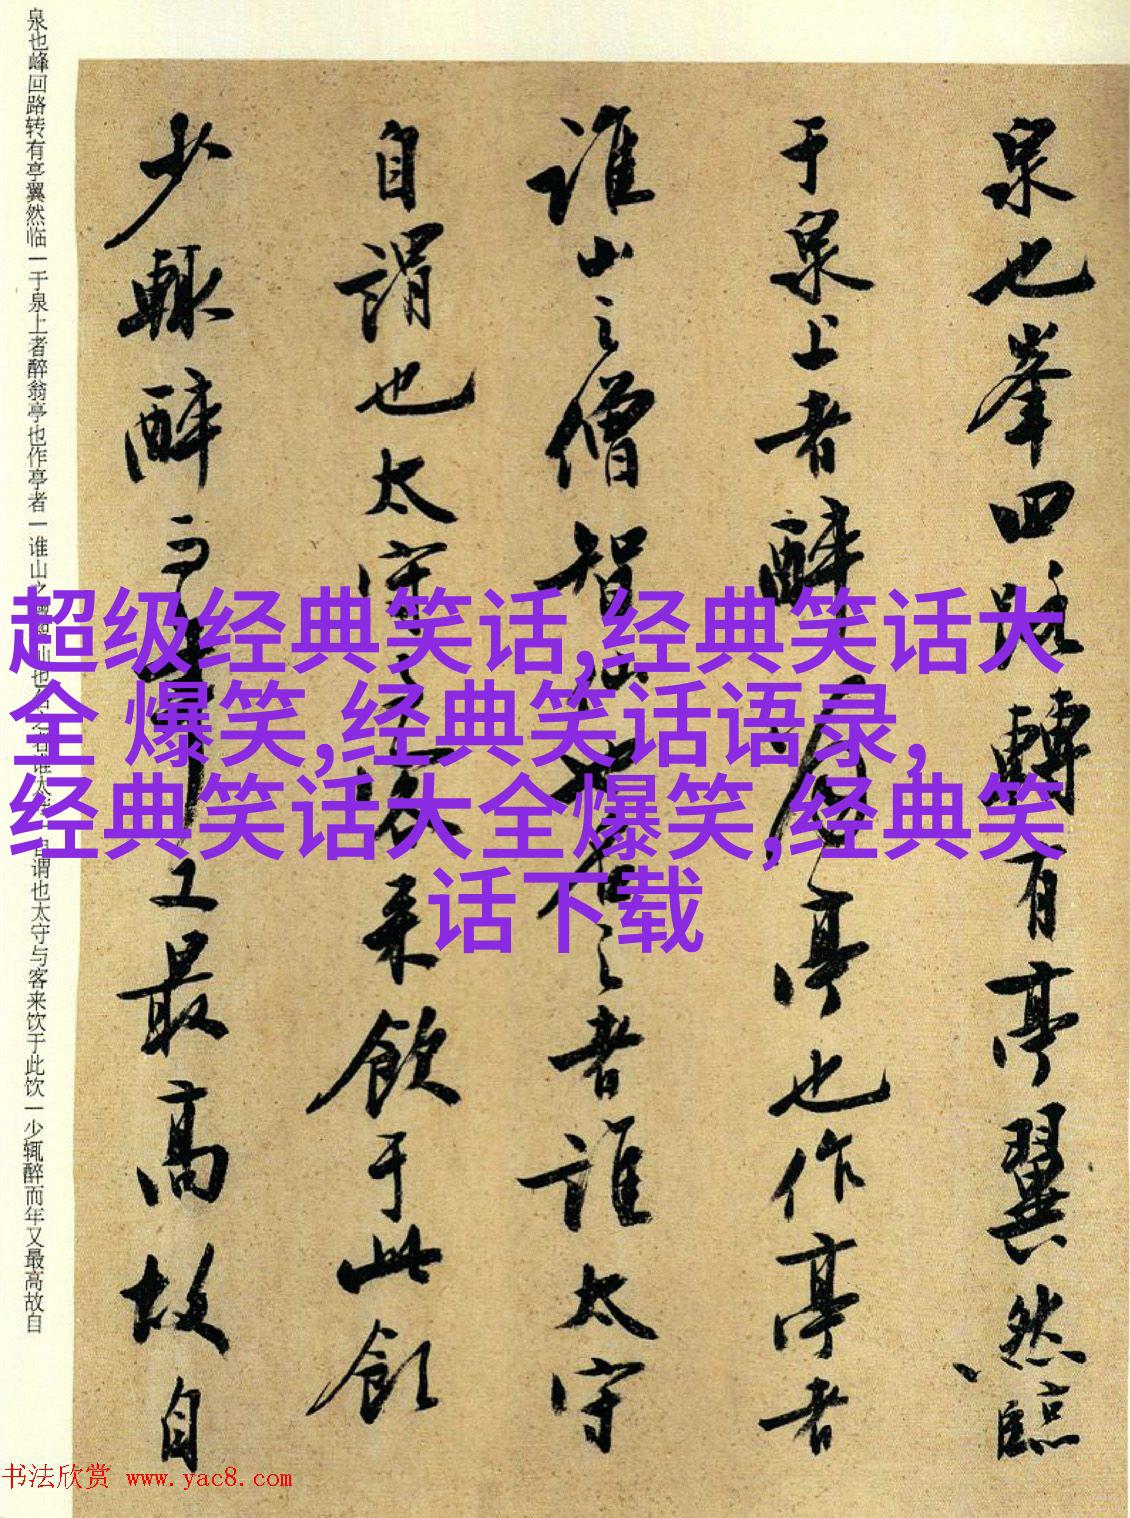 泉也峯回路轉有亭翼然臨
于泉上者醉翁亭也作亭者
誰山之僧智仙也名之者誰太守
自謂也太守与客来飲于此飲
少輒醉而年又最高故自
泉也峰回路转有亭翼然临一于泉上者醉翁亭也作亭者一谁山之僧智仙也名之者谁太守一自谓也太守与客来饮于此饮一少辄醉而年又最高故自
超级经典笑话,经典笑话大
全 爆笑,经典笑话语录,
经典笑话大全爆笑,经典笑
话下载
书法欣赏 www.yac8.com